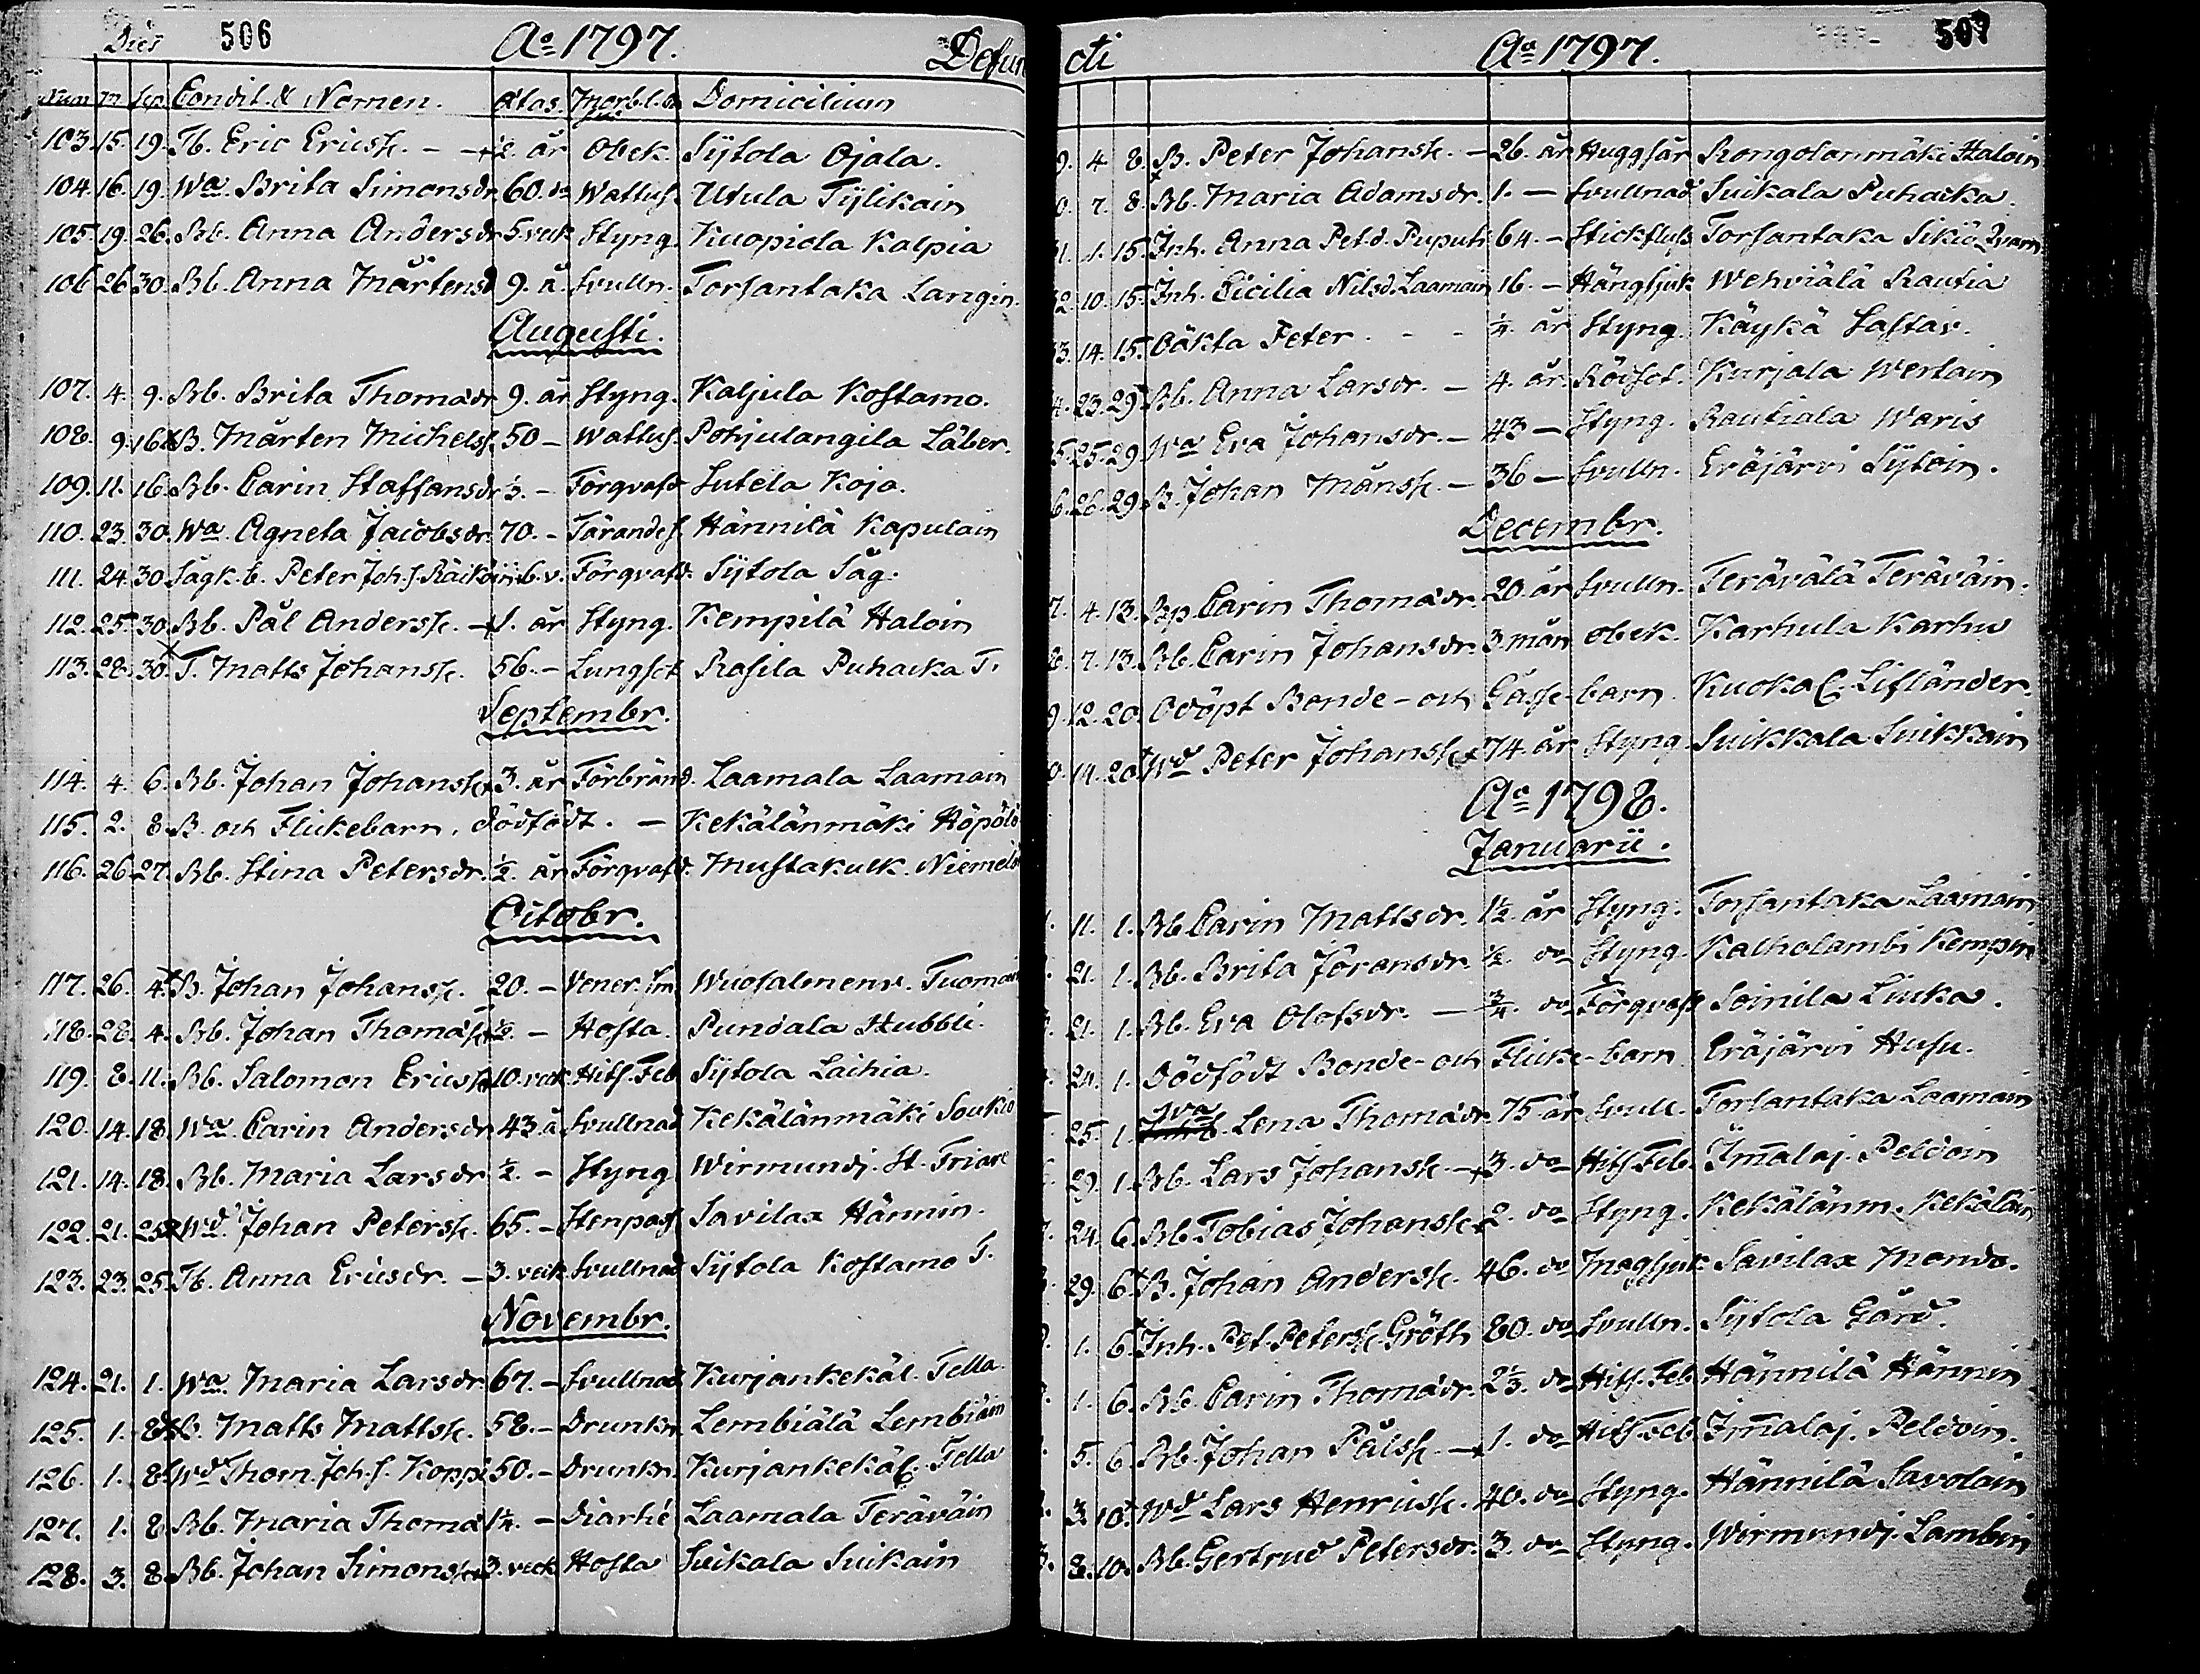 Dies 506 Ao 1797. Defun
Num m Sep Condit. & Nomen. Ætas. Morb. Domicilium
103. 15. 19. Tb. Eric Ericss. - + ½. år Obek. Sytola Ojala.
104. 16. 19. Wa. Brita Simonsdr 60. do Wattus. Utula Tylikain
105. 19. 26. Bb. Anna Andersdr 5 veck Styng. Kuopiola Kalpia
106 26 30. Bb. Anna Mårtensd 9. å. Svulln. Torsantaka Langin.
Augusti.
107. 4. 9. Bb. Brita Thomadr 9. år Styng. Kaljula Kostamo.
108. 9 16 B. Mårten Michelss. 50 - Wattus. Pohjulangila Läber.
109. 11. 16. Bb. Carin Staffansdr ⅓. - Förqvafd Sutela Koja.
110. 23. 30. Wa. Agneta Jacobsdr. 70. - Tärandes. Hännilä Kapulain
111. 24. 30. Sågk. b. Peter Joh.s. Räiköin 6. v. Förqvafd. Sytola Såg.
112. 25. 30. Bb. Pål Anderss. + 1. år Styng. Kempilä Haloin
113. 28. 30. T. Matts Johanss. 56. - Lungsot Rasila Puhacka T.
Septembr.
114. 4. 6. Bb. Johan Johanss. + 3. år Förbränd. Laamala Laamain
115. 2. 8. B. och Flickebarn. dödfödt. - Kekälänmäki Höpölö
116. 26. 27. Bb. Stina Petersdr. ½. år Förqvafd. Mustakulk. Niemelä
Octobr.
117. 26. 4. B. Johan Johanss. 20. - Vener. sm. Wuosalmenr. Tuomai
118. 28. 4. Bb. Johan Thomass. + ½. - Hosta. Pundala Hubbli.
119. 8. 11. Bb. Salomon Ericss. 10. veck Hits. Feb Sytola Laihia.
120. 14. 18. Wa. Carin Andersdr 43. å Svullnad Kekälänmäki Soukio
121. 14. 18. Bb. Maria Larsdr ½. - Styng Wirmundj. St. Friare
122. 21. 25. Wd. Johan Peterss. 65. - Stenpass. Savilax Hännin.
123. 23. 25. Tb. Anna Ericsdr. - 3. veck Svullnad Sytola Kostamo T.
Novembr.
124. 21. 1. Wa. Maria Larsdr 67. - Svullnad Kurjankekäl. Tella.
125. 1. 8. B. Matts Mattss. 58. - Drunkn. Lembiälä Lembiäin
126. 1. 8. Wd Thom. Joh.s. Koppi 50. - Drunkn. Kurjankekäl. Tella
127. 1. 8. Bb. Maria Thoma 1¼. - Diarhé Laamala Teräväin
128. 3. 8. Bb. Johan Simonss. + 3. veck Hosta Suikala Suikain
cti Ao 1797. 507
9. 4 8. B. Peter Johanss. - 26. år Huggsår Rongolanmäki Haloin
0. 7. 8. Bb. Maria Adamsdr. 1. - Svullnad Suikala Puhacka.
1. 1. 15. Inh. Anna Pet.d. Puputi 64. - Stickfluss Torsantaka Sikiö Qvarn
2. 10. 15. Inh. Cicilia Nilsd. Laamain 16. - Hängsjuk Wehviälä Rautia
3. 14. 15. Oäkta Peter. - - ¼. år Styng. Käykä Sastav.
4. 23. 29. Bb. Anna Larsdr. - 4. år Rödsot. Kurjala Wertain
5. 25. 29. Wa Eva Johansdr. - 43 - Styng. Rautiala Waris
6. 26. 29. B. Johan Månss. - 36 - Svulln. Eräjärvi Sytoin.
Decembr.
7. 4. 13. Bp. Carin Thomadr. 20. år Svulln. Terävälä Teräväin.
8. 7. 13. Bb. Carin Johansdr. 3. mån obek. Karhula Karhu
9. 12. 20. Odöpt Bonde- och Gåsse- barn. Kuoka C. Lifländer.
0. 14. 20. Wd Peter Johanss. + 74. år Styng. Suikkala Suikkain
Ao 1798.
Januarii.
1. 11. 1. Bb. Carin Mattsdr. 1½ år Styng. Torsantaka Laamain
21. 1. Bb. Brita Jöransdr. ½. do Styng. Kalholambi Kempin
21. 1. Bb. Eva Olofsdr. - ¾. do Förqvafd Soinila Liuka.
24. 1. Dödfödt Bonde- och Flicke- barn Eräjärvi Husu.
25. 1. Wa Lena Thomadr. 75 år Svull. Torsantaka Laamain
29. 1. Bb. Lars Johanss. + 3. do Hits. Feb. Immalaj. Peldoin
24. 6. Bb. Tobias Johanss. + 2. do Styng. Kekälänm. Kekäläin
29. 6. B. Johan Anderss. 46. do Magsjuk Savilax Mondo.
1. 6. Inh. Pet. Peterss. Gröth 80. do Svulln. Sytola Gård.
1. 6. Bb. Carin Thomadr. 2⅓. do Hits. Feb Hännilä Hännin
5. 6. Bb. Johan Pålss. + 1. do Hits. Feb Immalaj. Peldoin.
3. 10. Wd Lars Henricss. 40. do Styng. Hännilä Savolain
3. 8. 10. Bb. Gertrud Petersdr. 3. do Styng. Wirmundj. Lambin